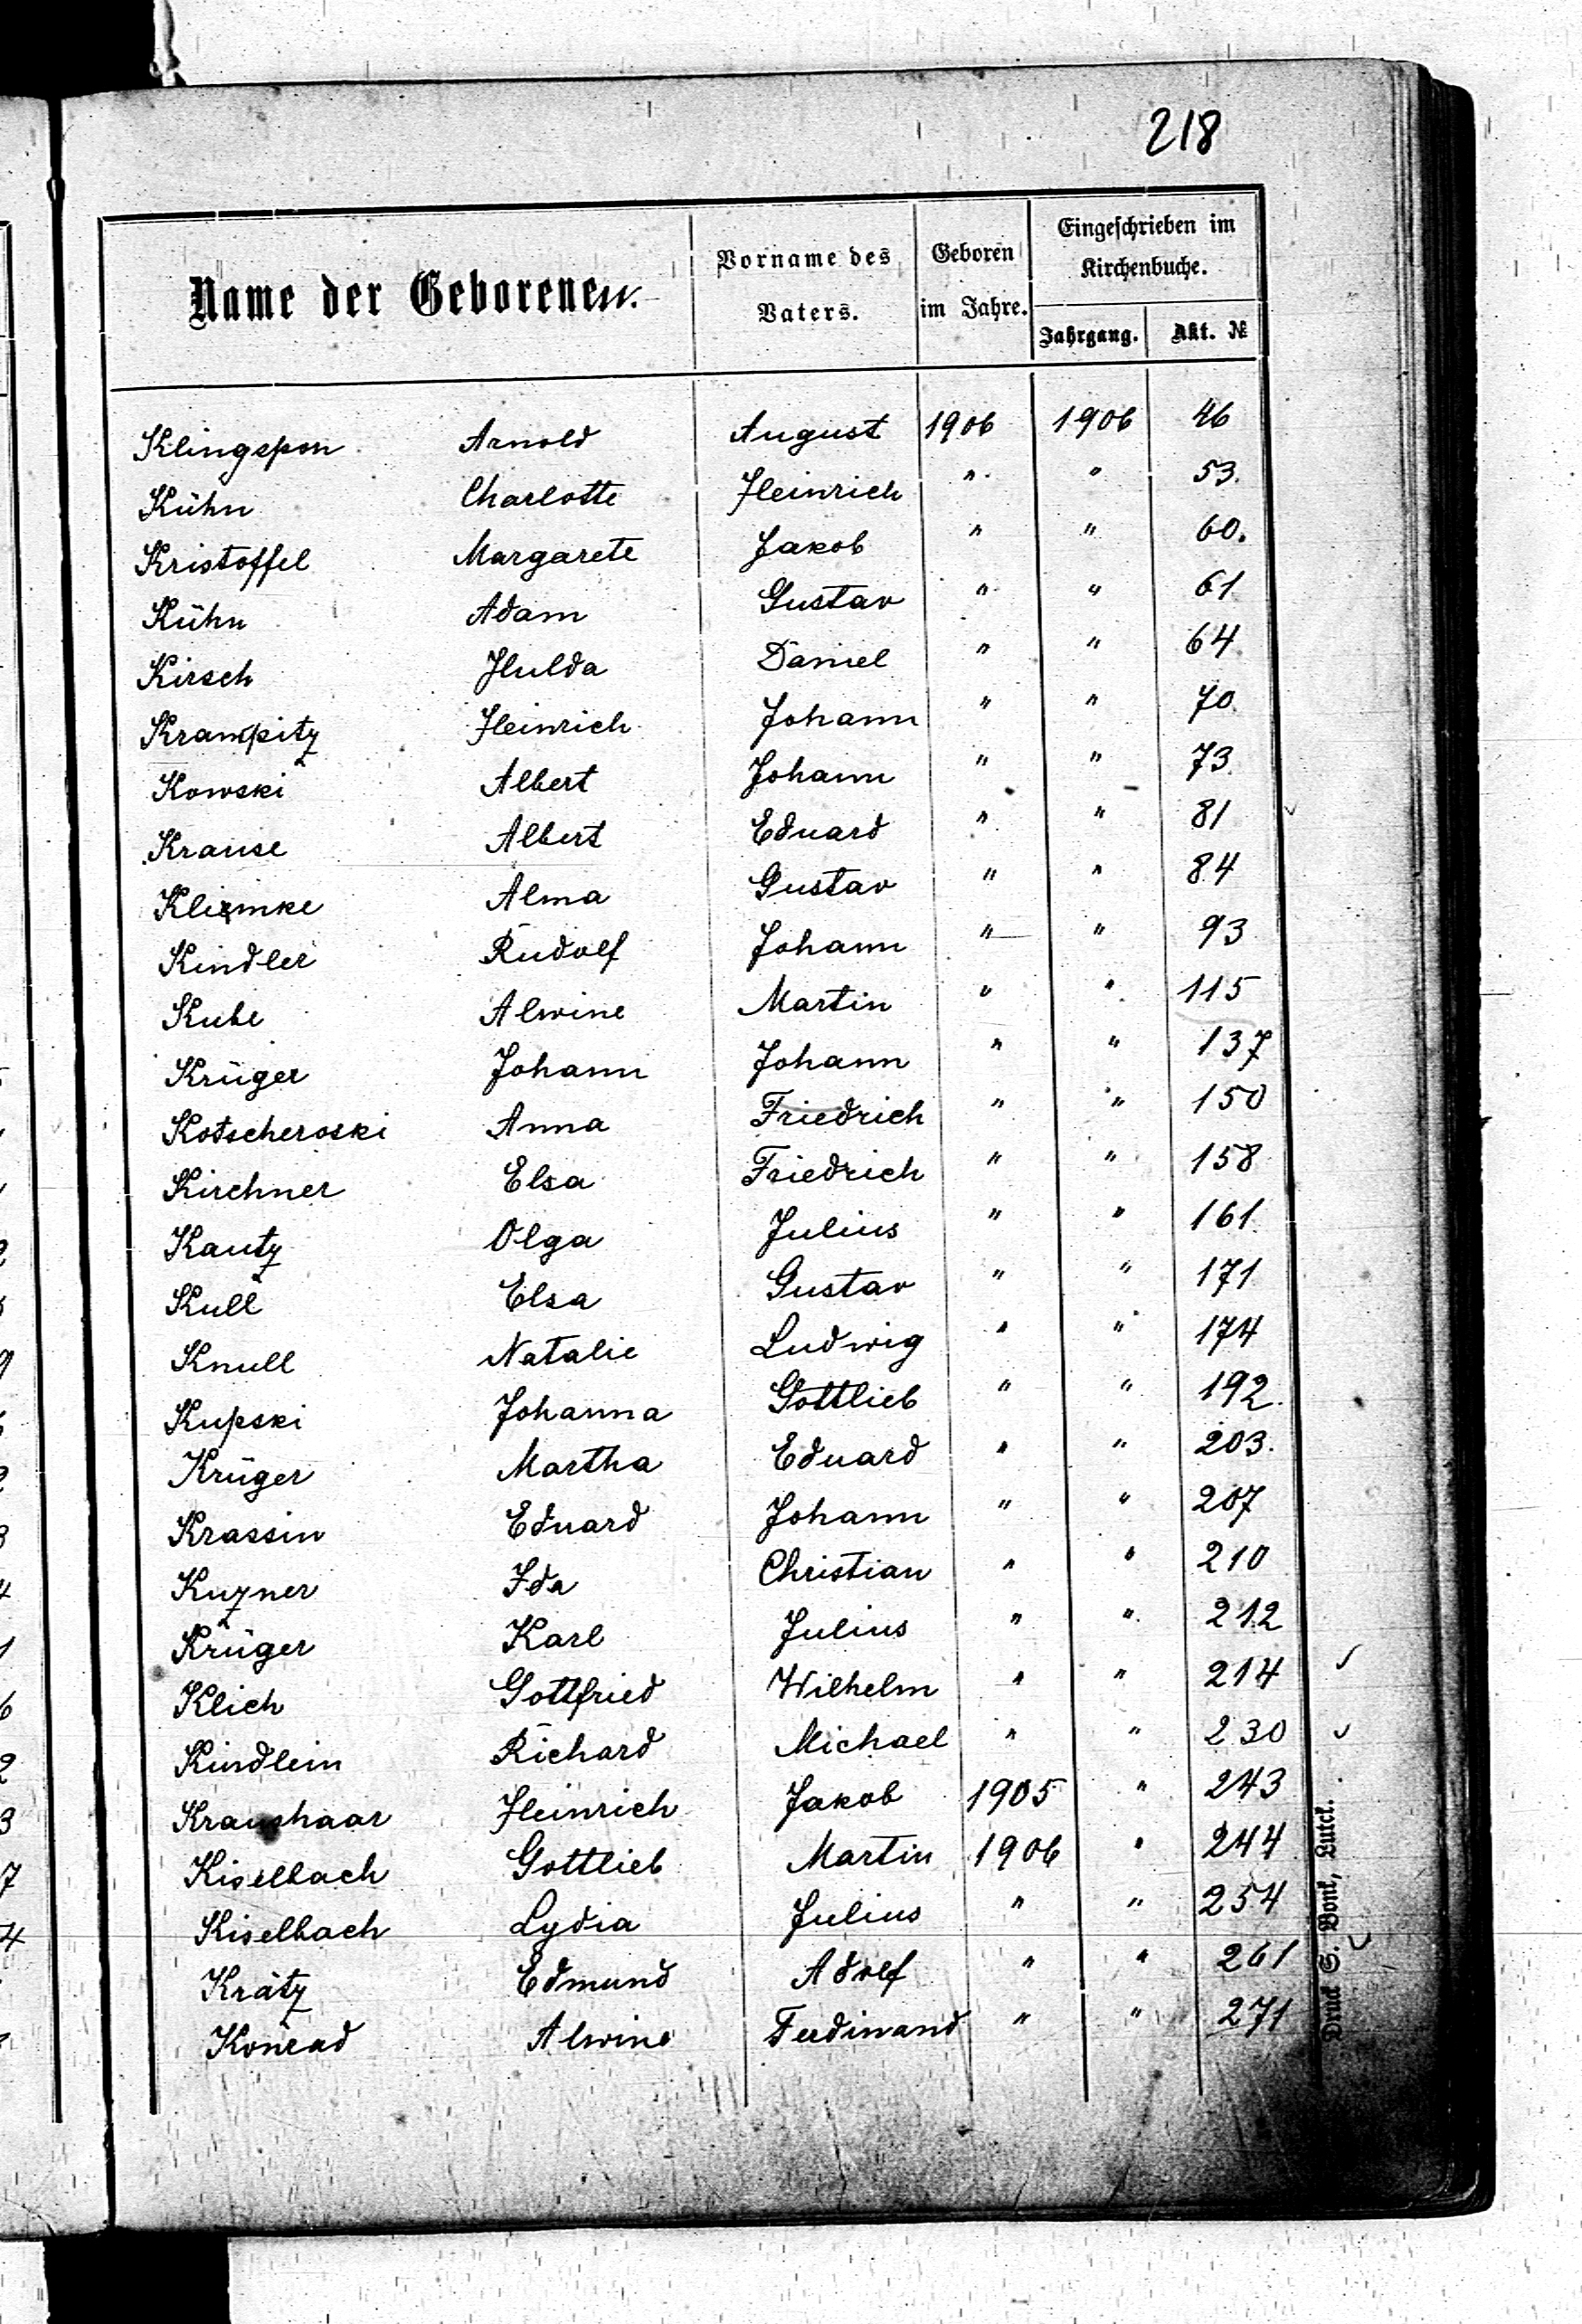 218
Name der Geborenen.
Vorname des Vaters.
Geboren im Jahre.
Eingeschrieben im Kirchenbuche.
Jahrgang. Akt. №
Klingspon Arnold August 1906 1906 46
Kühn Charlotte Heinrich " " 53.
Kristoffel Margarete Jakob " " 60.
Kühn Adam Gustav " " 61
Kirsch Hulda Daniel " " 64.
Krampitz Heinrich Johann " " 70.
Kowski Albert Johann " " 73.
Krause Albert Eduard " " 81
Klimke Alma Gustav " " 84
Kindler Rudolf Johann " " 93
Kube Alwine Martin " " 115
Krüger Johann Johann " " 137
Kotscheroski Anna Friedrich " " 150
Kirchner Elsa Friedrich " " 158
Kautz Olga Julius " " 161.
Kull Elsa Gustav " " 171
Knull Natalie Ludwig " " 174
Kupski Johanna Gottlieb " " 192.
Krüger Martha Eduard " " 203.
Krassin Eduard Johann " " 207
Kuzner Ida Christian " " 210
Krüger Karl Julius " " 212
Klich Gottfried Wilhelm " " 214
Kindlein Richard Michael " " 230
Kraushaar Heinrich Jakob 1905 " 243
Kiselbach Gottlieb Martin 1906 " 244
Kiselbach Lydia Julius " " 254
Krätz Edmund Adolf " " 261
Konrad Alwine Ferdinand " " 271
Druck S. Bonk, Lutck.